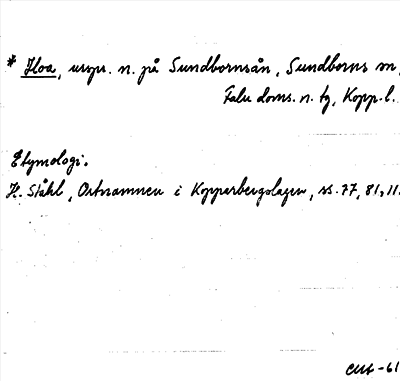 * Hoa, urspr. n. på Sundbornsån, Sundborns sn,
Falu doms. n. tg, Kopp. l.
Etymologi.
H. Ståhl, Ortnamnen i Kopparbergslagen, ss. 77, 81, 11
-61